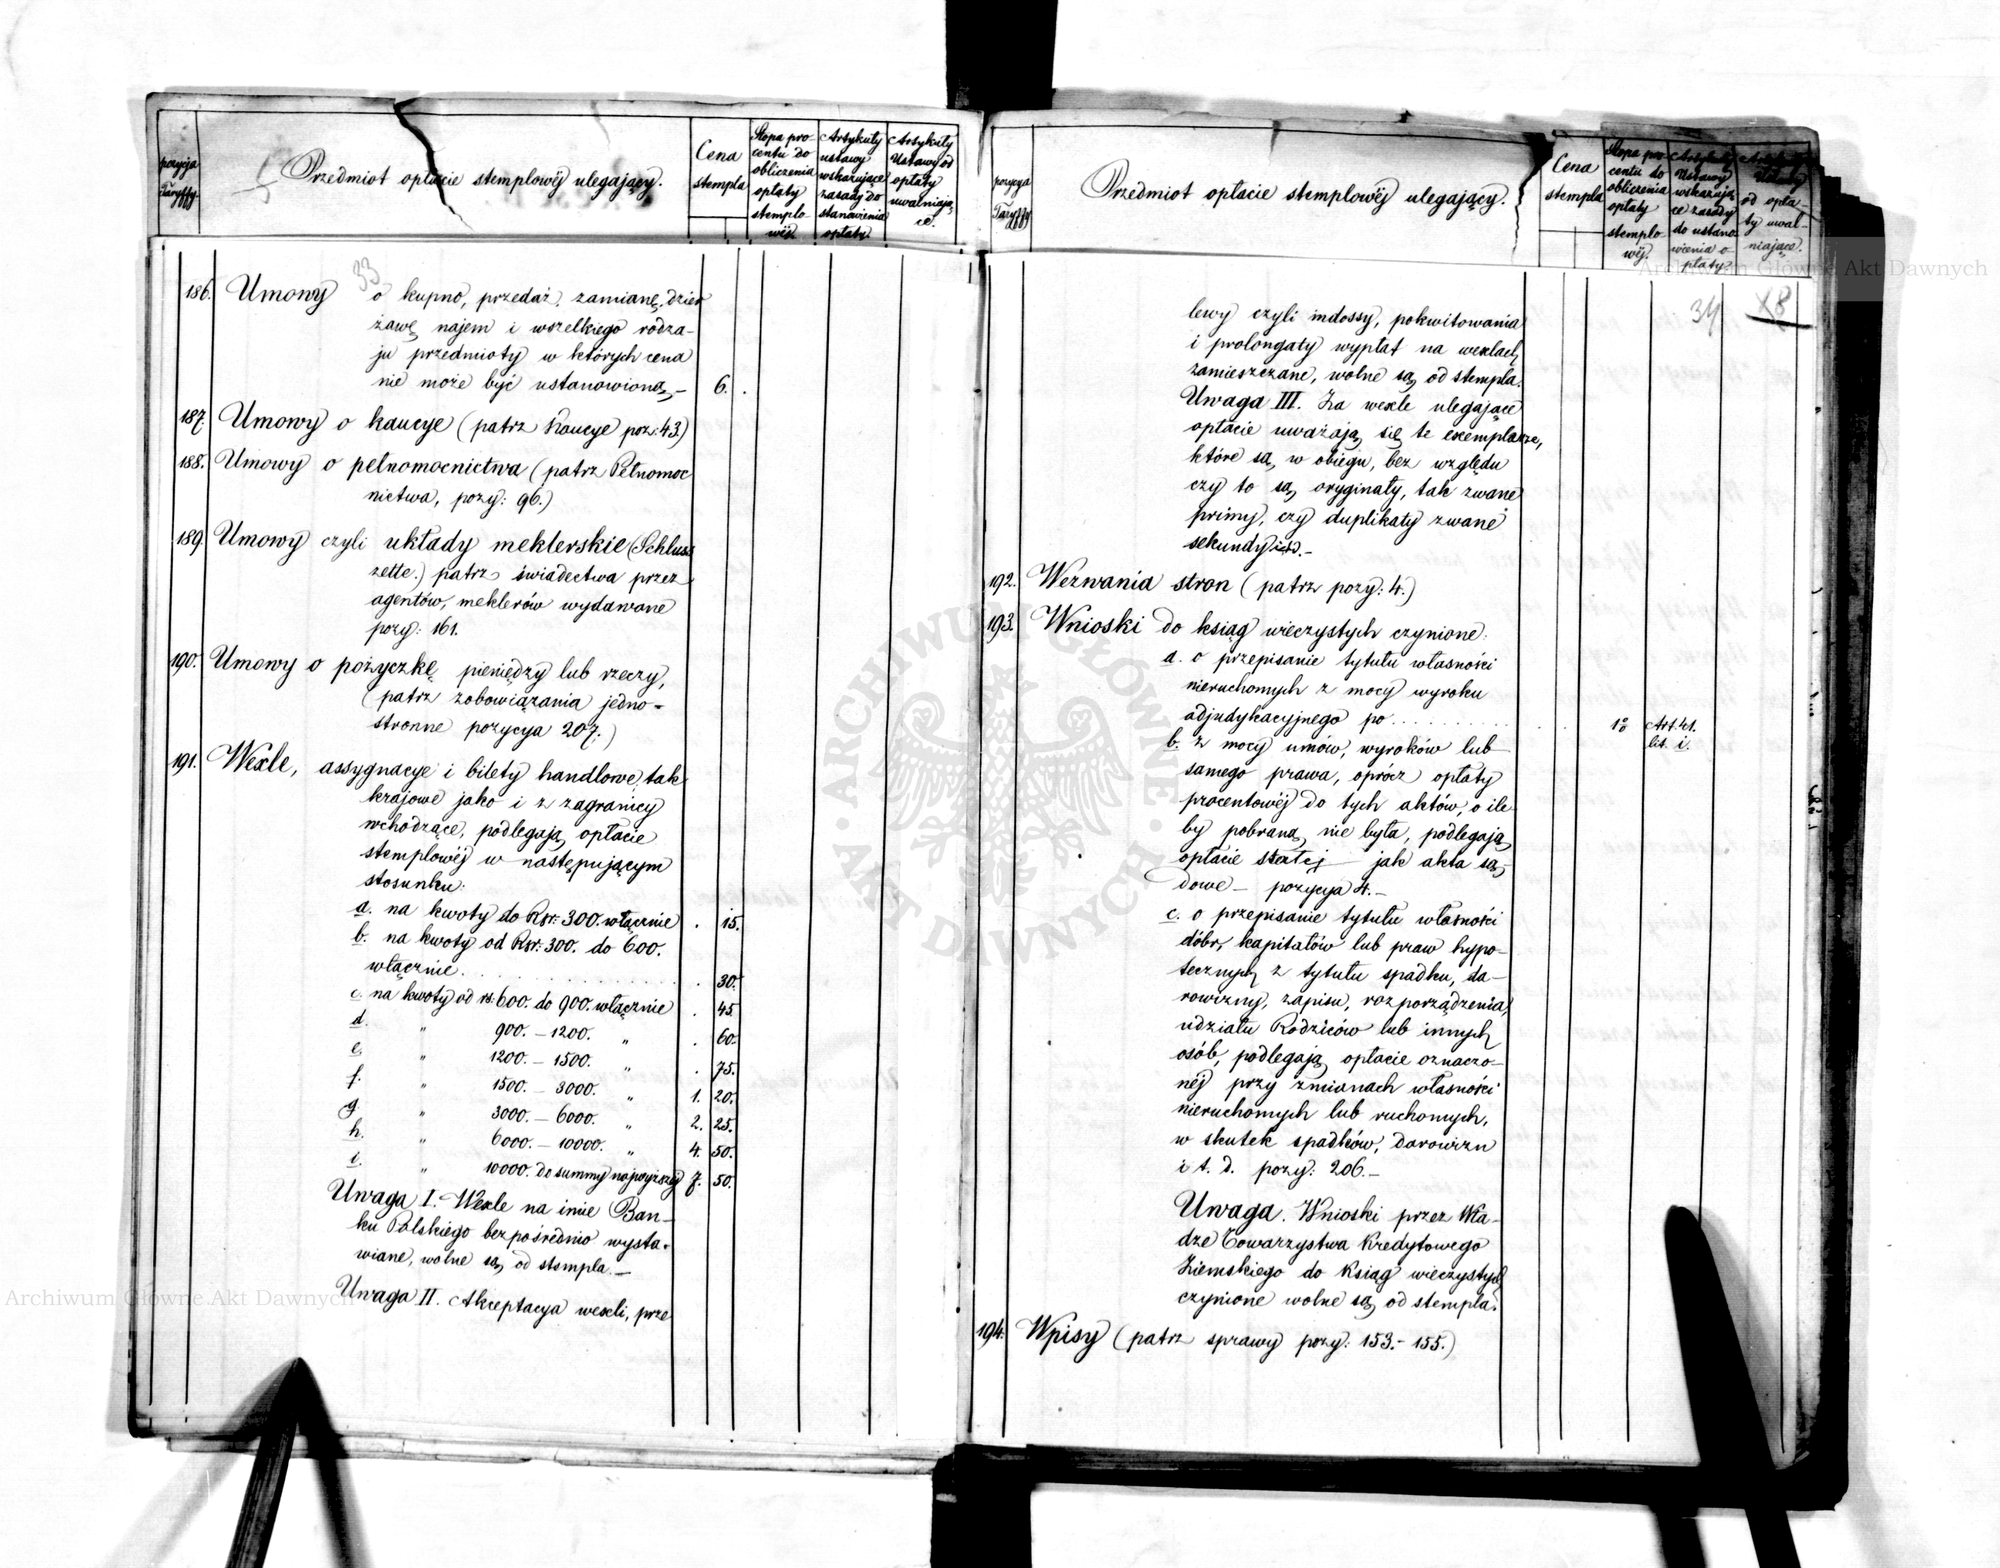 pozycja Taryffy
Przedmiot opłacie stemplowéj ulegający.
Cena stempla
Stopa procentu do obliczenia opłaty stemplowéj
Artykuły ustawy wskazujące zasady do stanowienia opłaty.
Artykuły Ustawy od opłaty uwalniające.
33
186. Umowy o kupno, przedaż, zamianę, dzier
żawę najem i wszelkiego rodza-
ju przedmioty w których cena
nie może być ustanowioną,- 6.
187. Umowy o kaucye (patrz Kaucye poz: 43.)
188. Umowy o pełnomocnictwa (patrz Pełnomoc
nictwa, pozy: 96.)
189. Umowy czyli układy meklerskie (Schluss
zette.) patrz świadectwa przez
agentów, meklerów wydawane
pozy: 161.
190. Umowy o pożyczkę pieniędzy lub rzeczy,
(patrz zobowiązania jedno-
stronne pozycya 207.)
191. Wexle, assygnacye i bilety handlowe, tak
krajowe jako i z zagranicy
wchodzące, podlegają opłacie
stemplowéj w następującym
stosunku:
a. na kwoty do Rsr: 300. włącznie . 15.
b. na kwoty od Rsr: 300. do 600.
włącznie. . 30.
c. na kwoty od rs: 600. do 900. włącznie . 45.
d. " 900. — 1200. " . 60.
e. " 1200. — 1500. " . 75.
f. " 1500. — 3000. " 1. 20.
g. " 3000. — 6000. " 2. 25.
h. " 6000. — 10000. " 4. 50.
i. " 10000. do summy najwyższéj 7. 50.
Uwaga I. Wexle na imie Ban-
ku Polskiego bezpośrednio wysta-
wiane, wolne są od stempla.—
Uwaga II. Akceptacya wexli, prze
pozycya Taryffy
Przedmiot opłacie stemplowéj ulegający.
Cena stempla
Stopa procentu do obliczenia opłaty stemplowéj.
Artykuły Ustawy wskazujące zasady do ustanowienia opłaty.
Artykuły Ustawy od opłaty uwalniające.
34 48
lewy czyli indossy, pokwitowania
i prolongaty wypłat na wexlach
zamieszczane, wolne są od stempla.
Uwaga III. Za wexle ulegające
opłacie uważają się te exemplarze,
które są w obiegu, bez względu
czy to są oryginały, tak zwane
primy, czy duplikaty zwane
sekundy itd.-
192. Wezwania stron (patrz pozy: 4.)
193. Wnioski do ksiąg wieczystych czynione:
a. o przepisanie tytułu własności
nieruchomych z mocy wyroku
adjudykacyjnego po . . . . . . . . 1% Art. 41.
lit. i.
b. z mocy umów, wyroków lub
samego prawa, oprócz opłaty
procentowéj do tych aktów, o ile
by pobraną nie była, podlegają
opłacie stałej — jak akta są-
dowe — pozycya 4.-
c. o przepisanie tytułu własności
dóbr, kapitałów lub praw hypo-
tecznych z tytułu spadku, da-
rowizny, zapisu, rozporządzenia,
udziału Rodziców lub innych
osób, podlegają opłacie oznaczo-
néj przy zmianach własności
nieruchomych lub ruchomych,
w skutek spadków, darowizn
i t. d. pozy: 206.-
Uwaga. Wnioski przez Wła-
dze Towarzystwa Kredytowego
Ziemskiego do Ksiąg wieczystych
czynione wolne są od stempla.
194. Wpisy (patrz sprawy pozy: 153.- 155.)
ARCHIWUM GŁÓWNE · AKT DAWNYCH ·
Archiwum Główne Akt Dawnych
Archiwum Główne Akt Dawnych